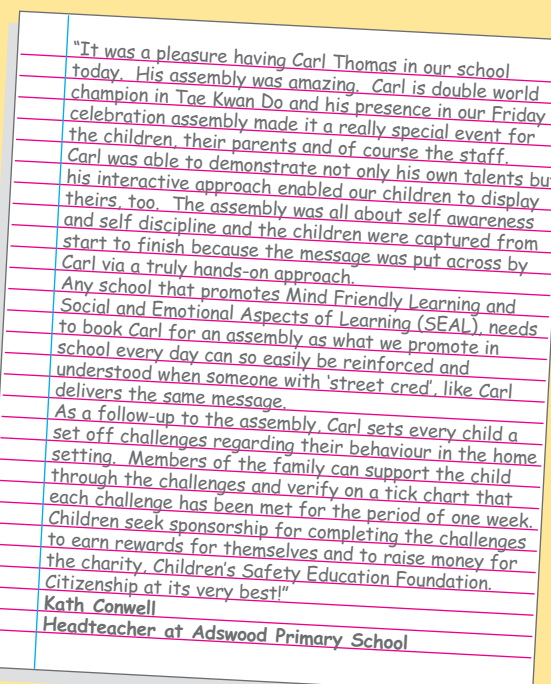 "It was a pleasure having Carl Thomas in our school
today. His assembly was amazing. Carl is double world
champion in Tae Kwan Do and his presence in our Friday
celebration assembly made it a really special event for
the children, their parents and of course the staff.
Carl was able to demonstrate not only his own talents but
his interactive approach enabled our children to display
theirs, too. The assembly was all about self awareness
and self discipline and the children were captured from
start to finish because the message was put across by
Carl via a truly hands-on approach.
Any school that promotes Mind Friendly Learning and
Social and Emotional Aspects of Learning (SEAL), needs
to book Carl for an assembly as what we promote in
school every day can so easily be reinforced and
understood when someone with 'street cred', like Carl
delivers the same message.
As a follow-up to the assembly, Carl sets every child a
set off challenges regarding their behaviour in the home
setting. Members of the family can support the child
through the challenges and verify on a tick chart that
each challenge has been met for the period of one week.
Children seek sponsorship for completing the challenges
to earn rewards for themselves and to raise money for
the charity, Children's Safety Education Foundation.
Citizenship at its very best!"
Kath Conwell
Headteacher at Adswood Primary School